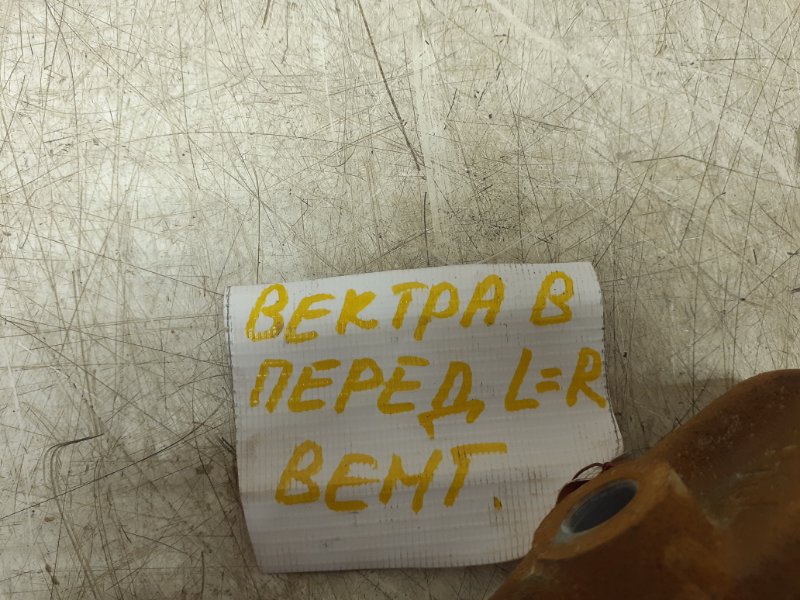 ВЕКТРА В
ПЕРЕД L=R
ВЕНТ.